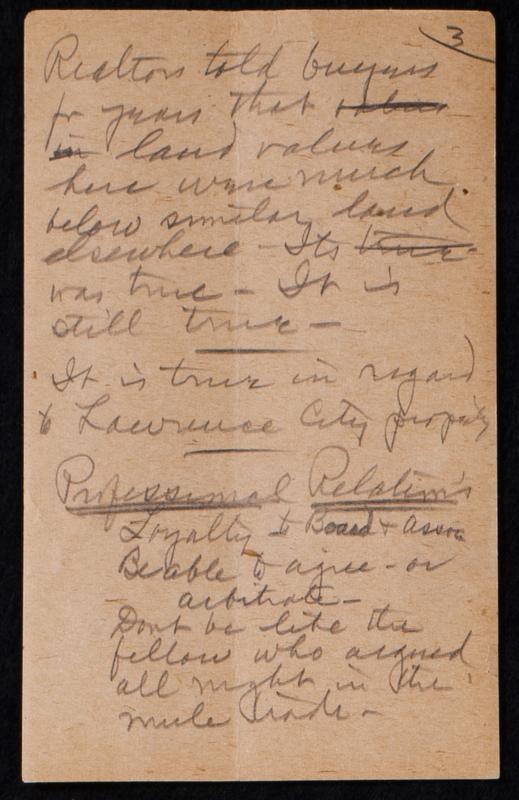 3
Realtors told buyers
for years that values
in land values
here were much
below similar land
elsewhere - Its true
was true - It is
still true -
It is true in regard
to Lawrence City property
Professional Relations
Loyalty to Board & Asson
Be able to agree - or
arbitrate -
Dont be like the
fellow who argued
all night in the
mule trade -